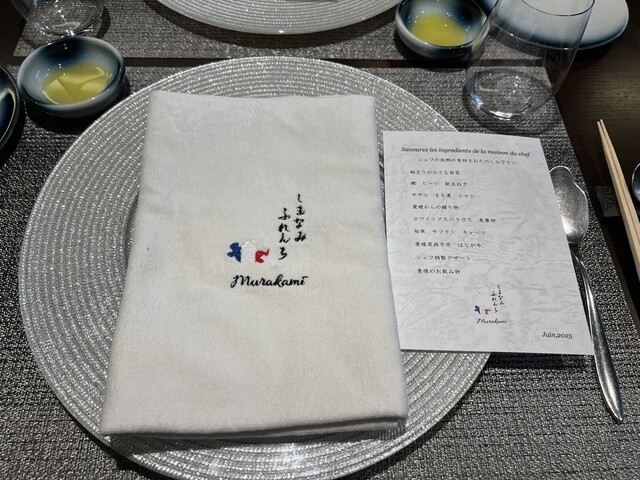 しまなみ
ふれんち
Murakami
Savourez les ingredients de la maison du chef
シェフの故郷の食材をおたのしみ下さい
始まりの小さな前菜
鰹 ビーツ 新玉ねぎ
サザエ もち麦 トマト
愛媛からの贈り物
ホワイトアスパラガス 真蛸
旬魚 サフラン キャベツ
愛媛県西予市 はなが牛
シェフ特製デザート
食後のお飲み物
しまなみ
ふれんち
Murakami
Juin,2025